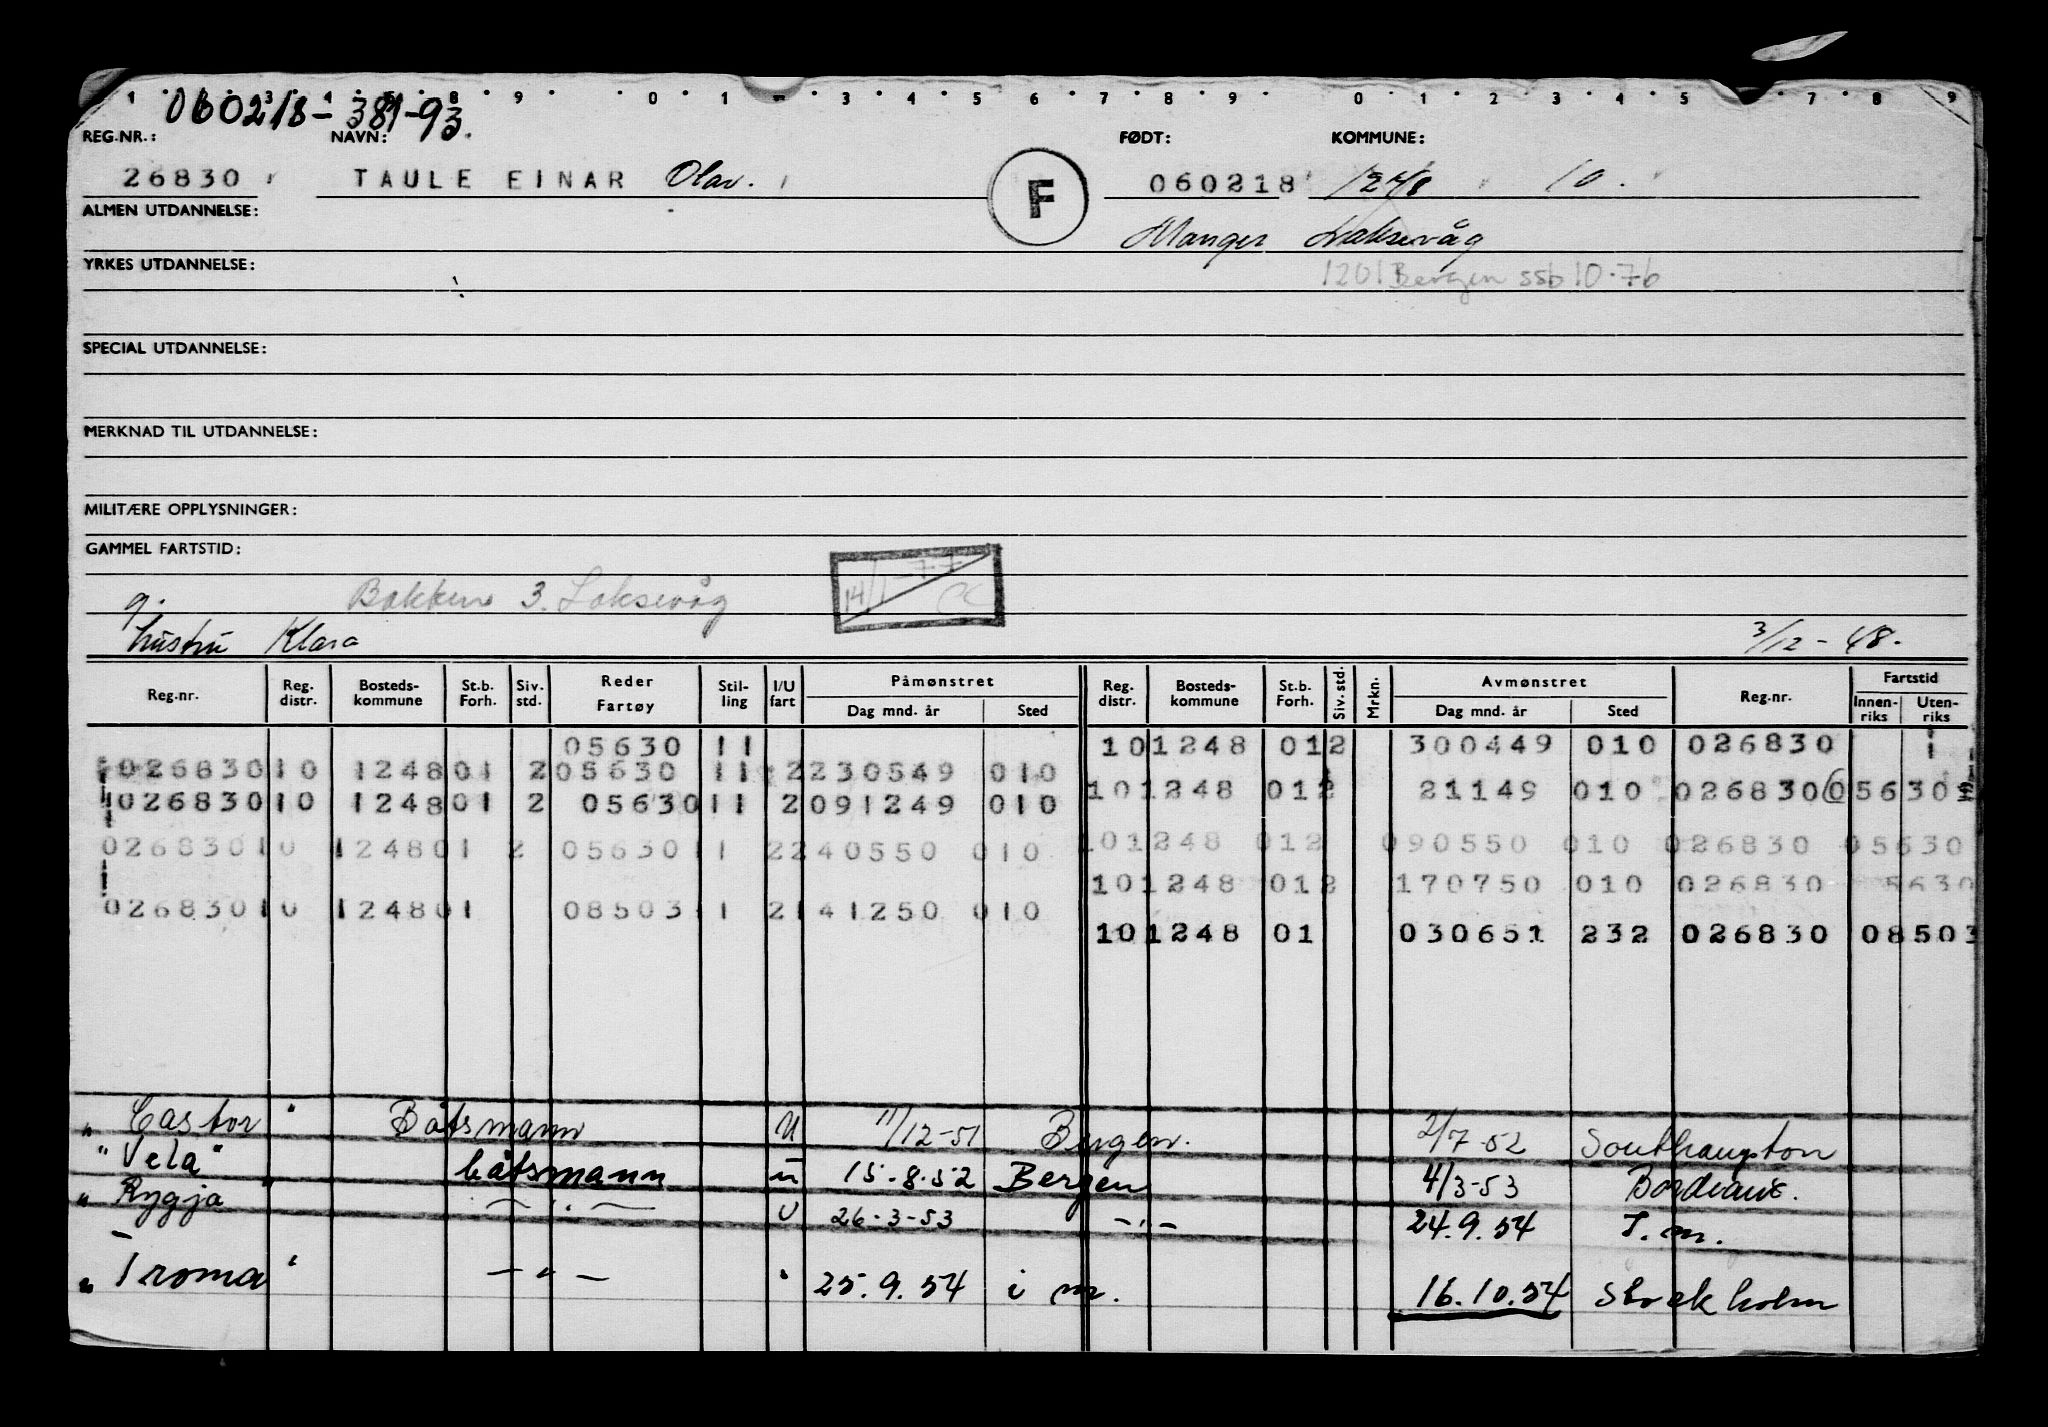 060218-38193.
REG.NR.: NAVN: FØDT: KOMMUNE:
26830 TAULE EINAR Olav. F 060218 1248 10.
ALMEN UTDANNELSE: Manger Laksevåg
YRKES UTDANNELSE: 1201 Bergen ssb 10.76
SPECIAL UTDANNELSE:
MERKNAD TIL UTDANNELSE:
MILITÆRE OPPLYSNINGER:
GAMMEL FARTSTID:
g. Bakken 3. Laksevåg 14/1-77
hustru Klara 3/12-48.
Reg.nr. Reg. distr. Bosteds-kommune St.b. Forh. Siv. std. Reder Fartøy Stil-ling I/U fart Påmønstret Dag mnd. år Sted Reg. distr. Bosteds-kommune St.b. Forh. Siv. std. Mrkn. Avmønstret Dag mnd. år Sted Reg.nr. Fartstid Innen-riks Uten-riks
05630 11 10 1248 012 300449 010 026830
026830 10 1248 01 2 05630 11 2 230549 010 10 1248 012 21149 010 026830 05630
026830 10 1248 01 2 05630 11 2 091249 010 10 1248 012 090550 010 026830 05630
026830 10 1248 01 2 05630 11 2 240550 010 10 1248 012 170750 010 026830 5630
026830 10 1248 01 08503 11 2 141250 010 10 1248 01 030651 232 026830 08503
" Castor " Båtsmann U 11/12-51 Bergen. 2/7-52 Southampton
" Vela " båtsmann u 15.8.52 Bergen 4/3-53 Bordeaux.
" Rygja " —"— U 26-3-53 -"- 24.9.54 I. m.
" Troma " —"— " 25.9.54 i m. 16.10.54 Stockholm